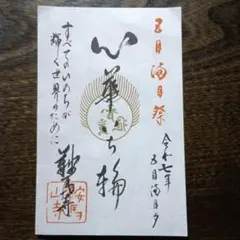 五月満月祭
心華ち輪
すべてのいのちが
輝く世界のために
鞍馬寺
令和七年
五月満月夕